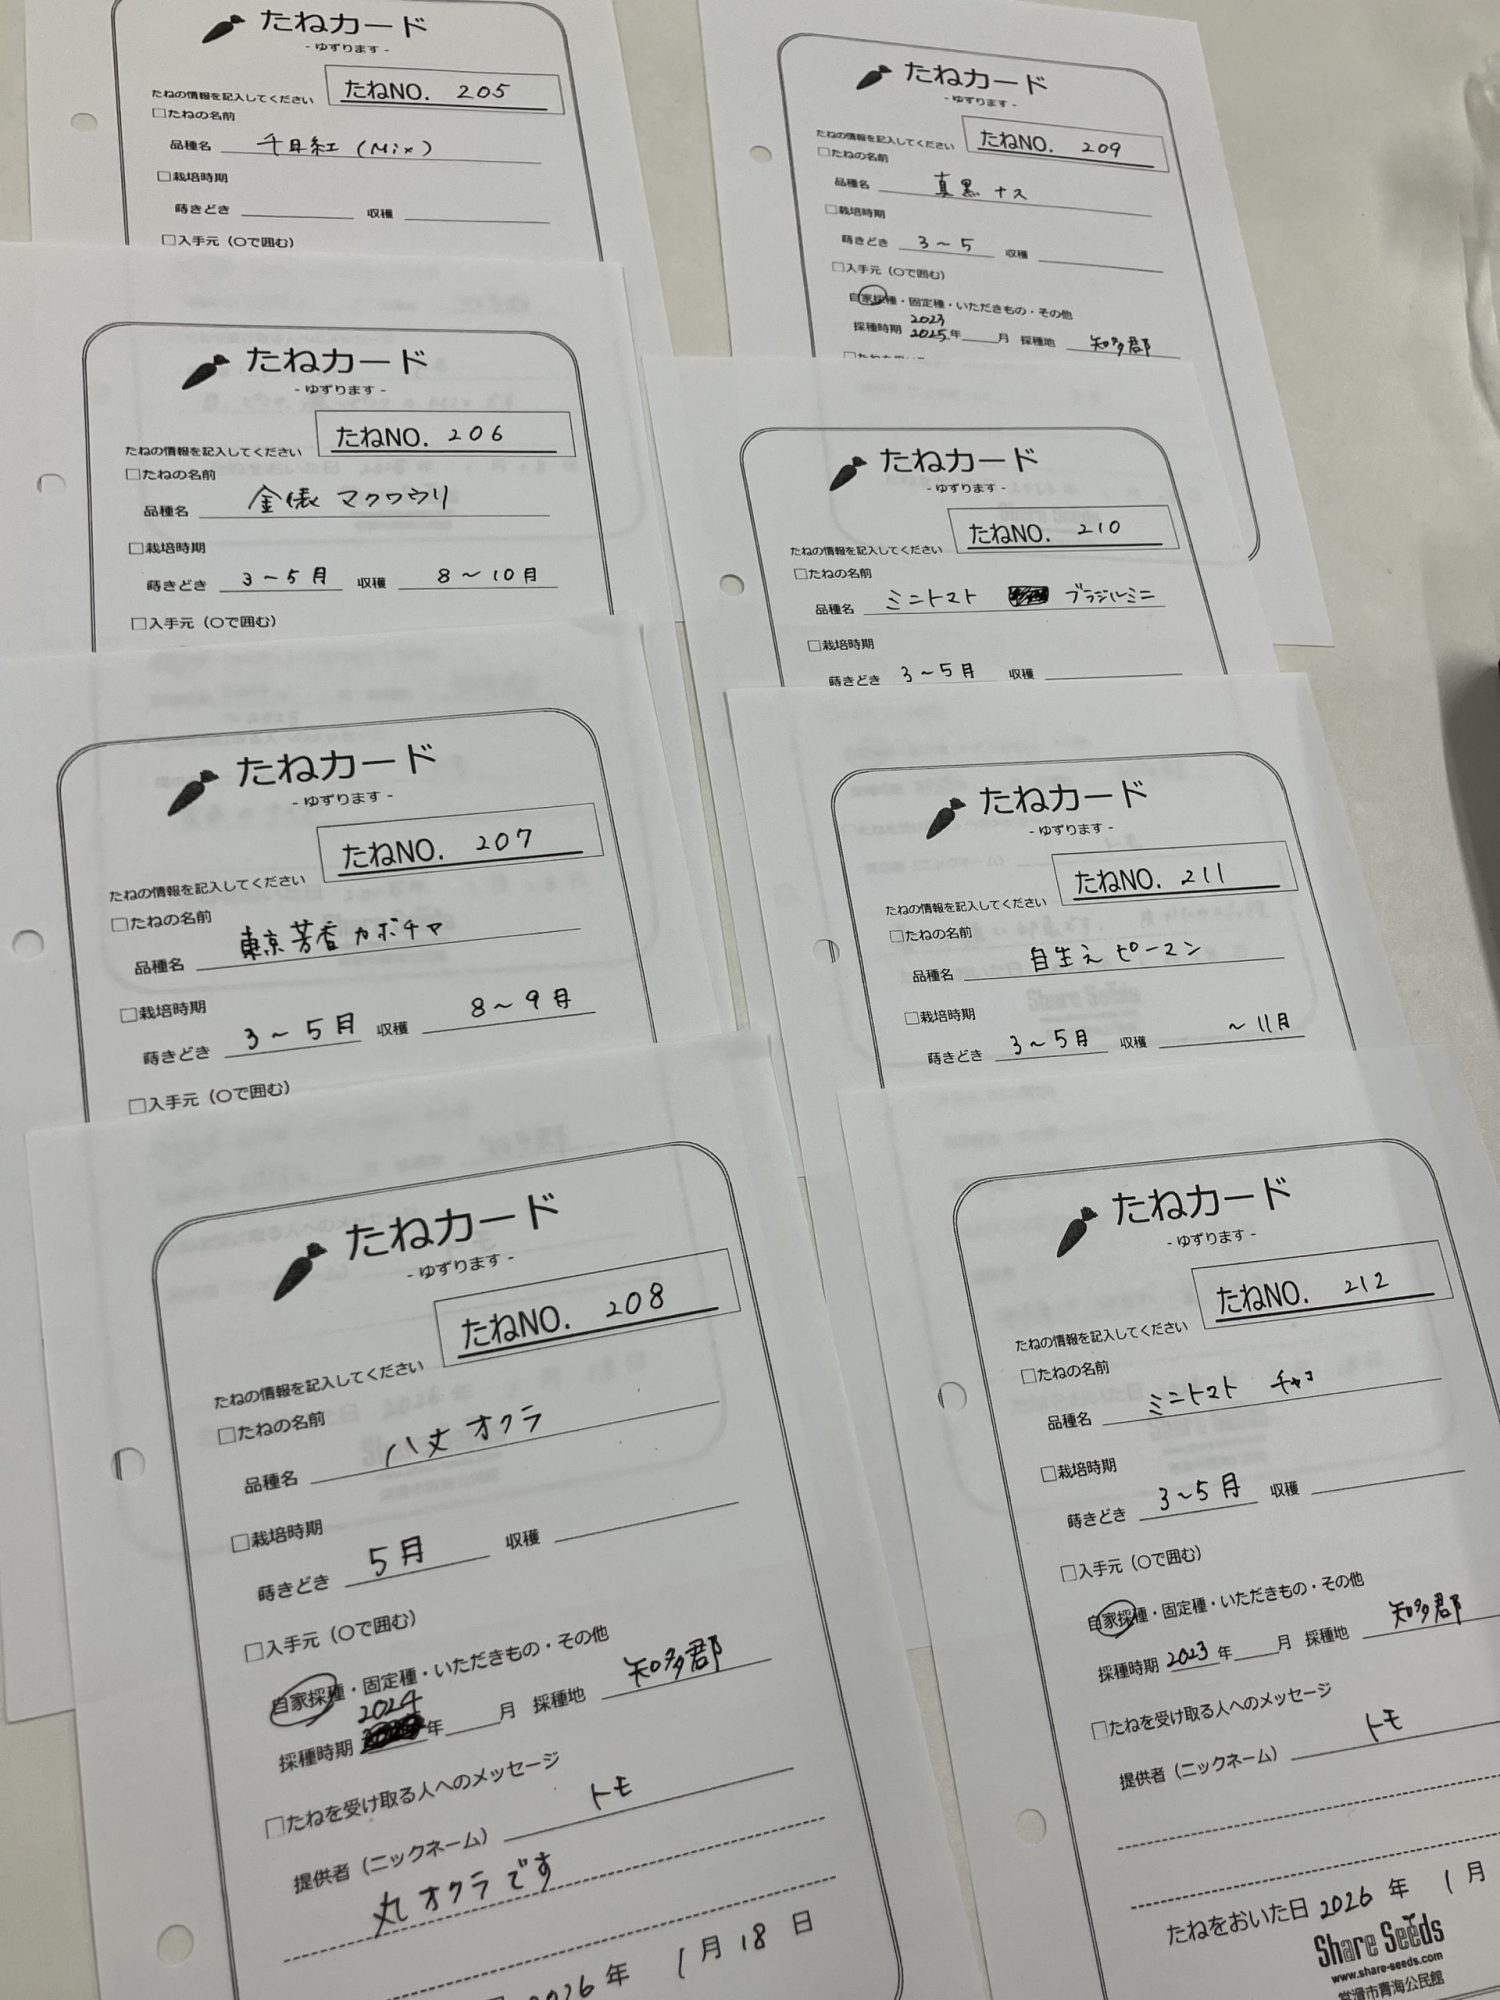 たねカード
- ゆずります -
たねNO. 205
たねの情報を記入してください
□たねの名前
品種名 千日紅 (Mix)
□栽培時期
蒔きどき 収穫
□入手元（○で囲む）
たねカード
- ゆずります -
たねNO. 206
たねの情報を記入してください
□たねの名前
品種名 金俵 マクワウリ
□栽培時期
蒔きどき 3～5月 収穫 8～10月
□入手元（○で囲む）
たねカード
- ゆずります -
たねNO. 207
たねの情報を記入してください
□たねの名前
品種名 東京芳香カボチャ
□栽培時期
蒔きどき 3～5月 収穫 8～9月
□入手元（○で囲む）
たねカード
- ゆずります -
たねNO. 208
たねの情報を記入してください
□たねの名前
品種名 八丈オクラ
□栽培時期
蒔きどき 5月 収穫
□入手元（○で囲む）
自家採種・固定種・いただきもの・その他
2024
採種時期 年 月 採種地 知多郡
□たねを受け取る人へのメッセージ
提供者（ニックネーム） トモ
丸オクラです
2026 年 1月 18 日
たねカード
- ゆずります -
たねNO. 209
たねの情報を記入してください
□たねの名前
品種名 真黒ナス
□栽培時期
蒔きどき 3～5 収穫
□入手元（○で囲む）
自家採種・固定種・いただきもの・その他
2023
採種時期 2025年 月 採種地 知多郡
たねカード
- ゆずります -
たねNO. 210
たねの情報を記入してください
□たねの名前
品種名 ミニトマト ブラジルミニ
□栽培時期
蒔きどき 3～5月 収穫
たねカード
- ゆずります -
たねNO. 211
たねの情報を記入してください
□たねの名前
品種名 自生えピーマン
□栽培時期
蒔きどき 3～5月 収穫 ～11月
たねカード
- ゆずります -
たねNO. 212
たねの情報を記入してください
□たねの名前
品種名 ミニトマト チャコ
□栽培時期
蒔きどき 3～5月 収穫
□入手元（○で囲む）
自家採種・固定種・いただきもの・その他
採種時期 2023 年 月 採種地 知多郡
□たねを受け取る人へのメッセージ
提供者（ニックネーム） トモ
たねをおいた日 2026 年 1 月
Share Seeds
www.share-seeds.com
常滑市青海公民館